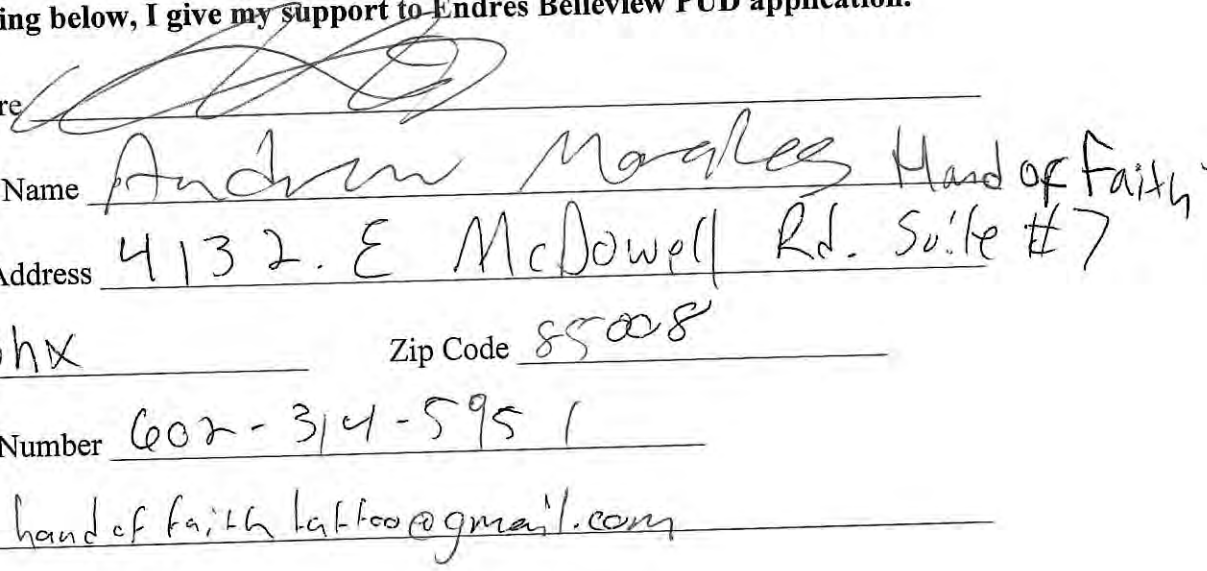 ing below, I give my support to Endres Belleview PUD application.
re
Name Andrew Morales Hand of Faith
Address 4132. E McDowell Rd. Suite #7
phx Zip Code 85008
Number 602-314-5951
hand of faith tattoo@gmail.com